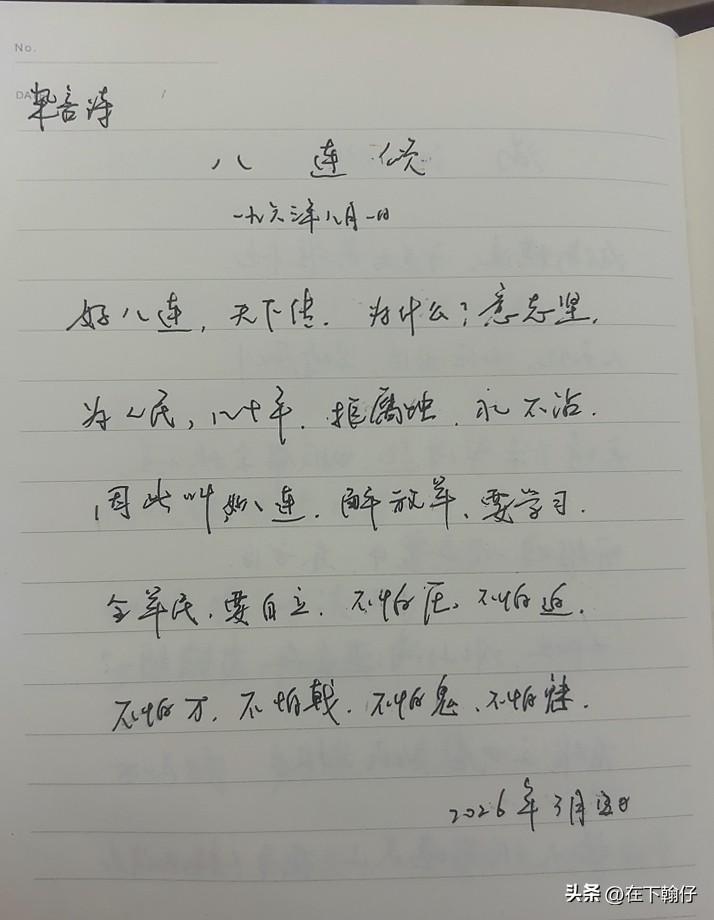 No.
DATE /
杂言诗
八连颂
一九六三年八月一日
好八连，天下传。为什么？意志坚。
为人民，几十年。拒腐蚀，永不沾。
因此叫好八连。解放军，要学习。
全军民，要自立。不怕压，不怕迫。
不怕刀，不怕戟。不怕鬼，不怕魅。
2026年3月5日
头条 @在下翰仔